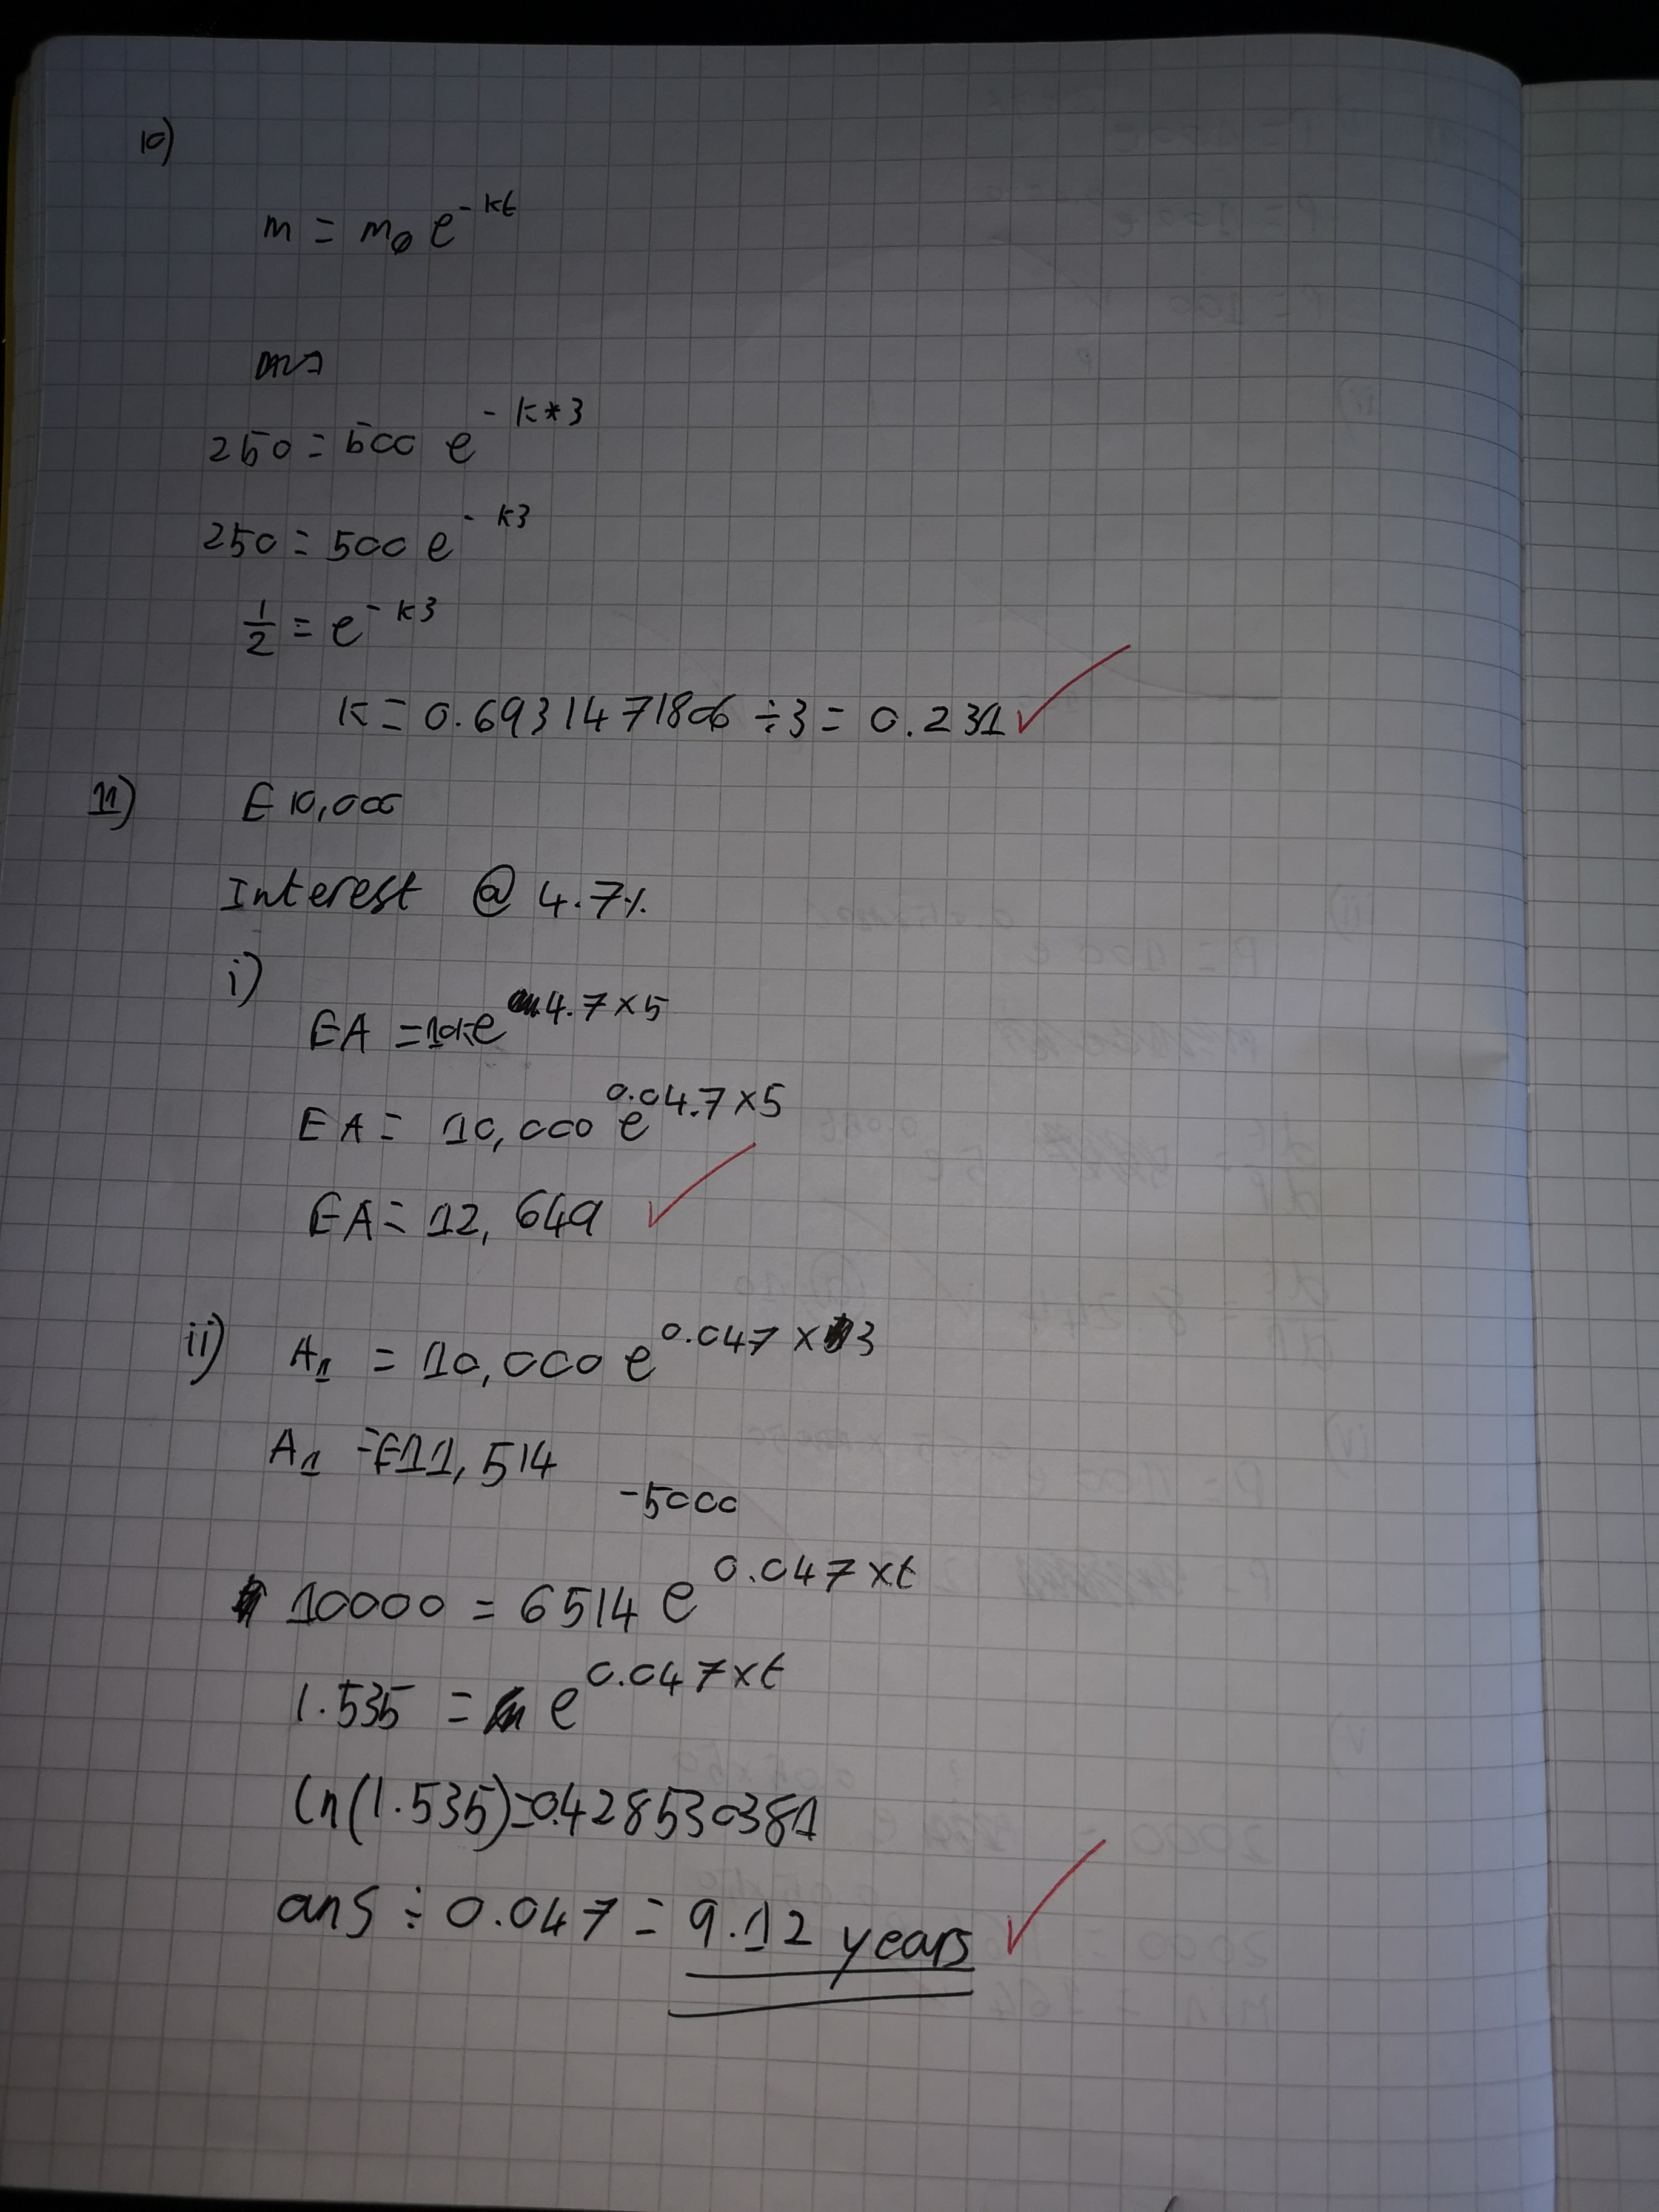 10)
m = m₀ e^-kt
250 = 500 e^-k*3
250 = 500 e^-k3
1/2 = e^-k3
k = 0.6931471806 ÷3 = 0.231
11) £10,000
Interest @ 4.7%
i)
£A = e^4.7×5
£A = 10,000 e^0.04.7×5
£A = 12,649
ii) A₁ = 10,000 e^0.047×3
A₁ = £11,514
-5000
10000 = 6514 e^0.047×t
1.535 = e^0.047×t
ln(1.535)=0.428530381
ans ÷ 0.047 = 9.12 years